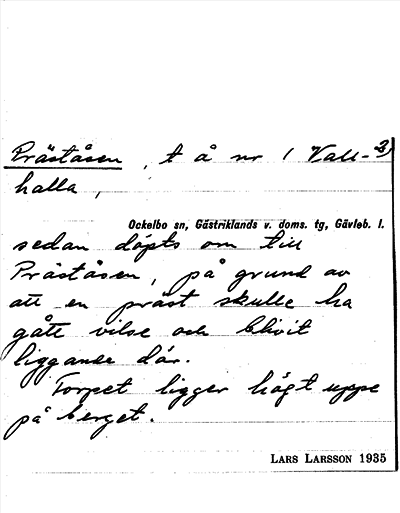 Präståsen, t å nr 1 Vall- 3)
halla,
Ockelbo sn, Gästriklands v. doms. tg, Gävleb. l.
sedan döpts om till
Präståsen, på grund av
att en präst skulle ha
gått vilse och blivit
liggande där.
Torpet ligger högt uppe
på berget.
LARS LARSSON 1935